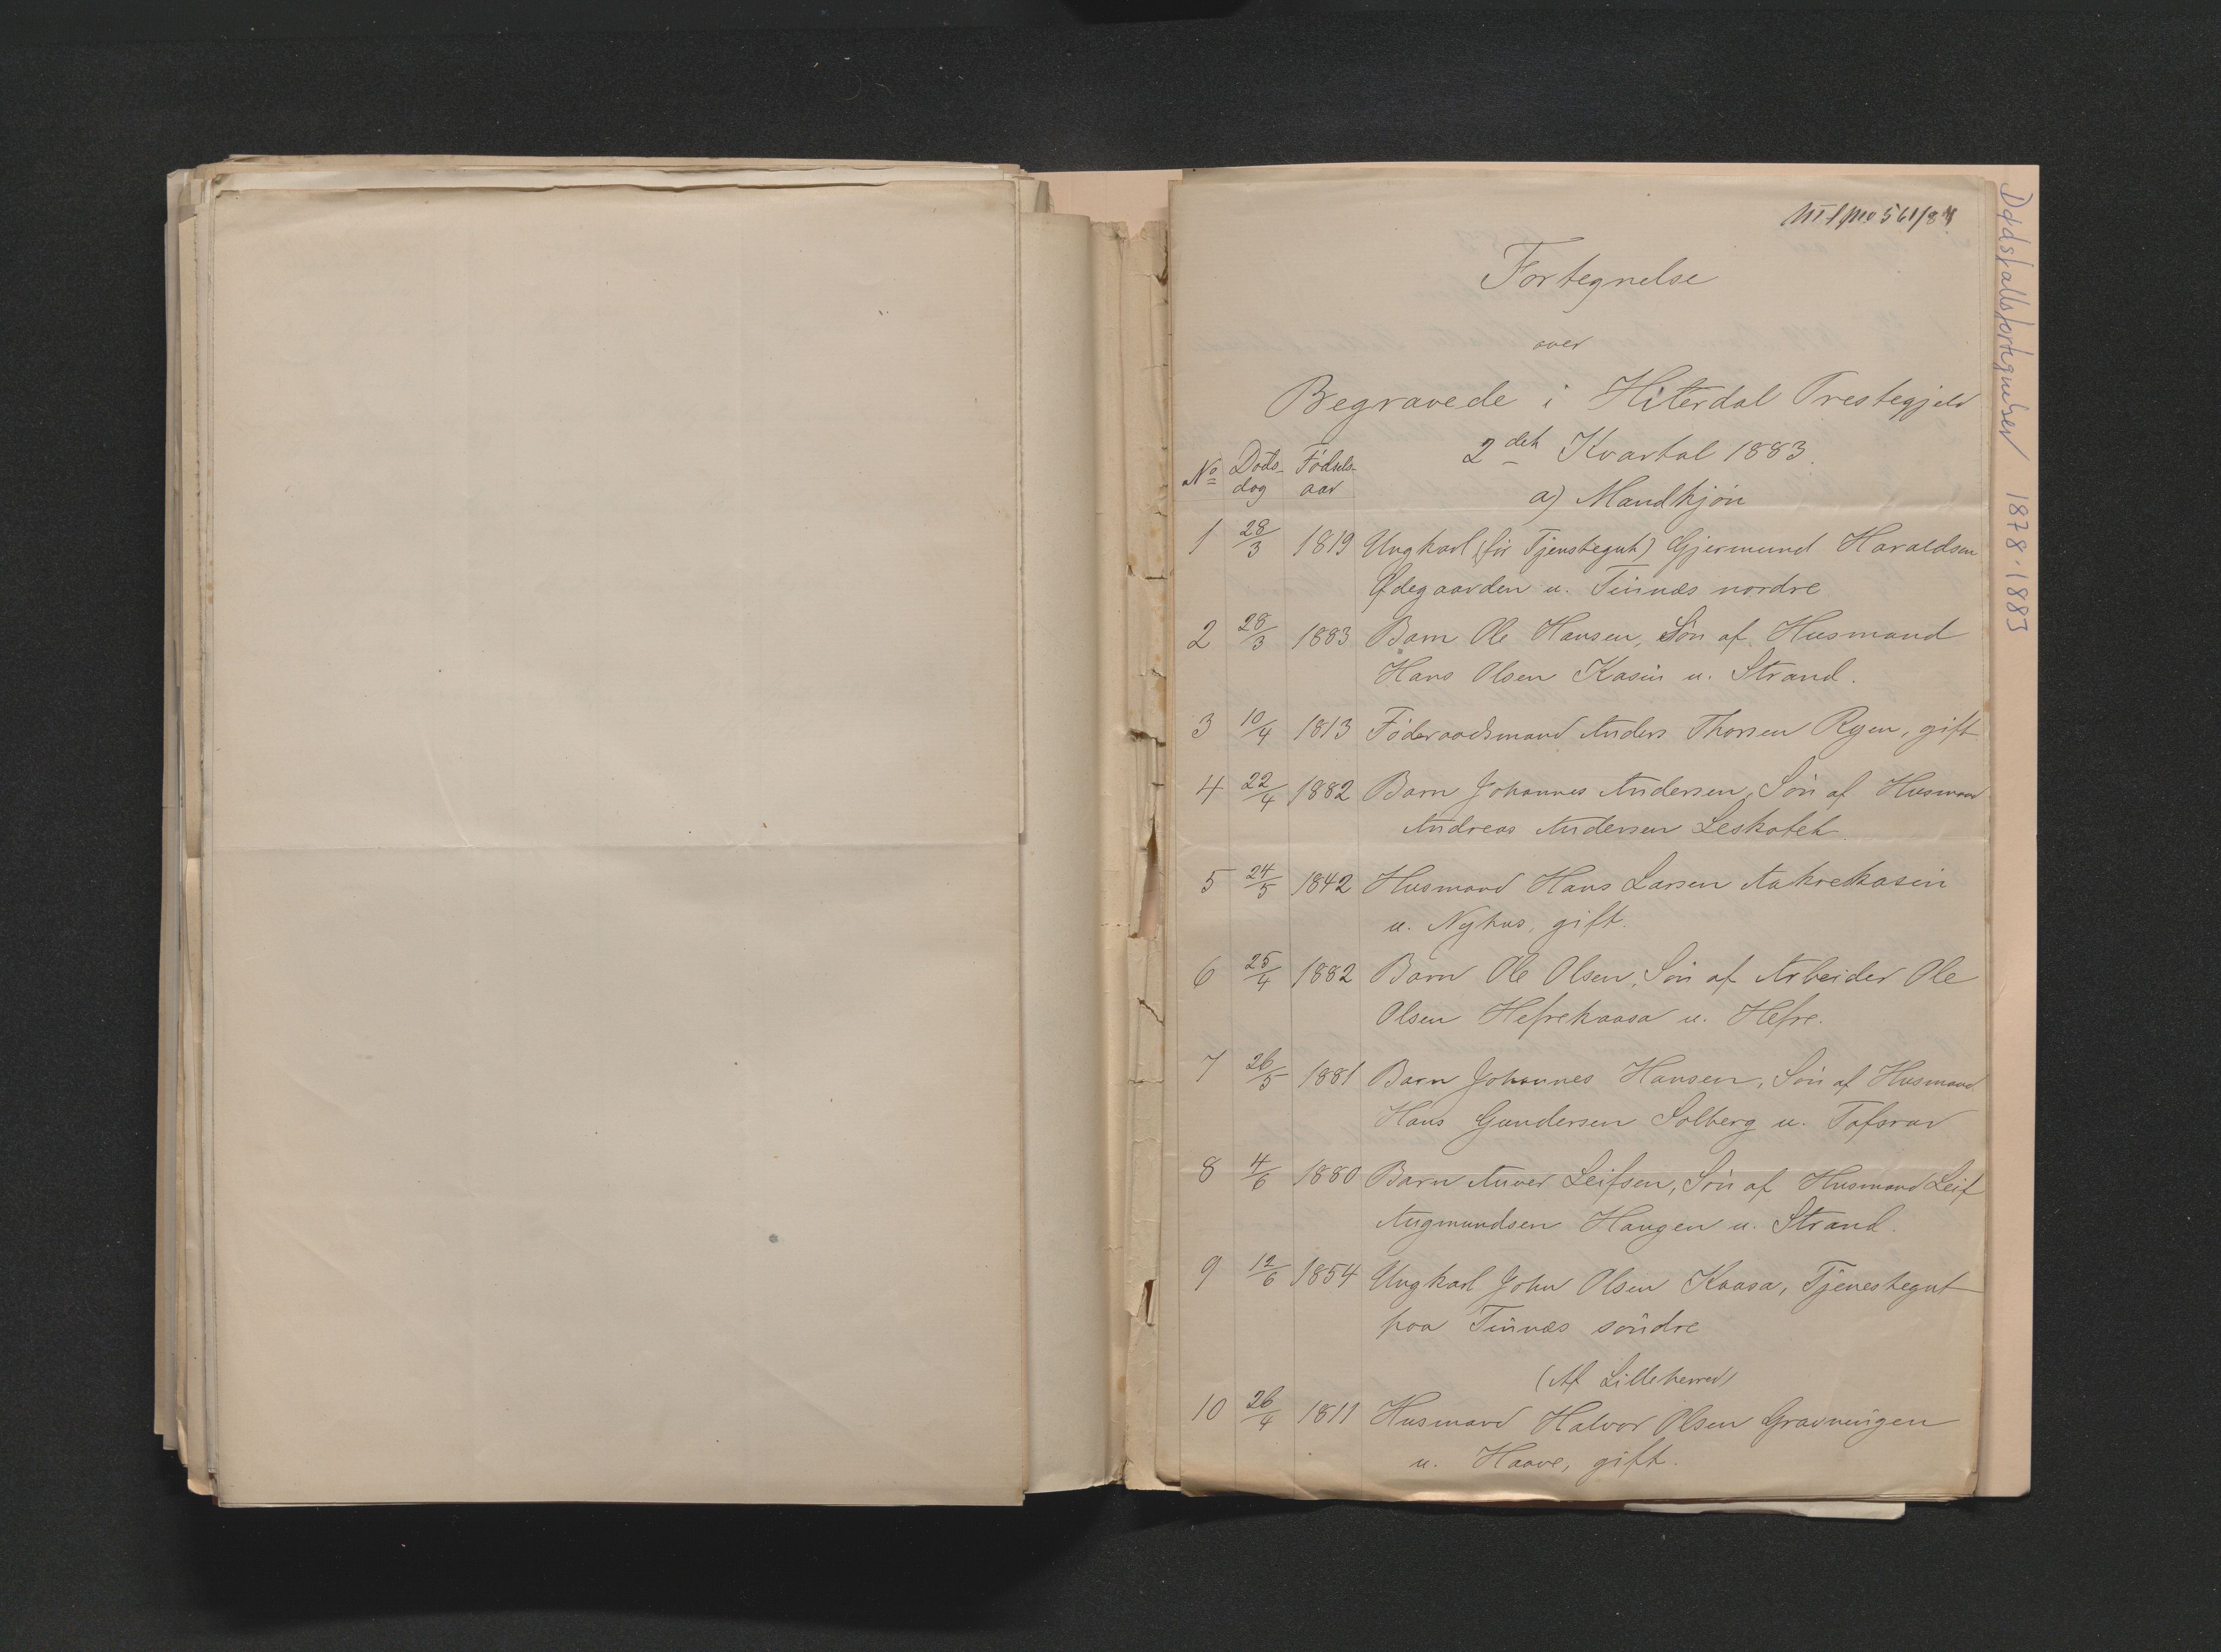 Fortegnelse
over
Begravede i Hiterdal Prestegjeld
2det Kvartal 1883.
No Døds- dag Fødsels- aar
a) Mandkjøn
1 28/3 1819 Ungkarl (før Tjenstegut) Gjermund Haraldsen
Ødegaarden u. Tinnæs nordre
2 28/3 1883 Barn Ole Hansen, Søn af Husmand
Hans Olsen Kasin u. Strand.
3 10/4 1813 Føderaadsmand Anders Thorsen Ryen, gift
4 22/4 1882 Barn Johannes Andersen, Søn af Husmand
Andreas Andersen Leskotek.
5 24/5 1842 Husmand Hans Larsen
u. Nyhus, gift.
6 25/4 1882 Barn Ole Olsen, Søn af Arbeider Ole
Olsen Hefrekaasa u. Hefre.
7 26/5 1881 Barn Johannes Hansen, Søn af Husmand
Hans Gundersen Solberg u.
8 4/6 1880 Barn Leifsen, Søn af Husmand Leif
Augmundsen Haugen u. Strand.
9 12/6 1854 Ungkarl John Olsen Kaasa, Tjenestegut
paa Tinnæs søndre
(Af Lilleherred)
10 26/4 1811 Husmand Halvor Olsen Gravningen
u. Haave, gift.
Dødsfallsfortegnelser 1878-1883